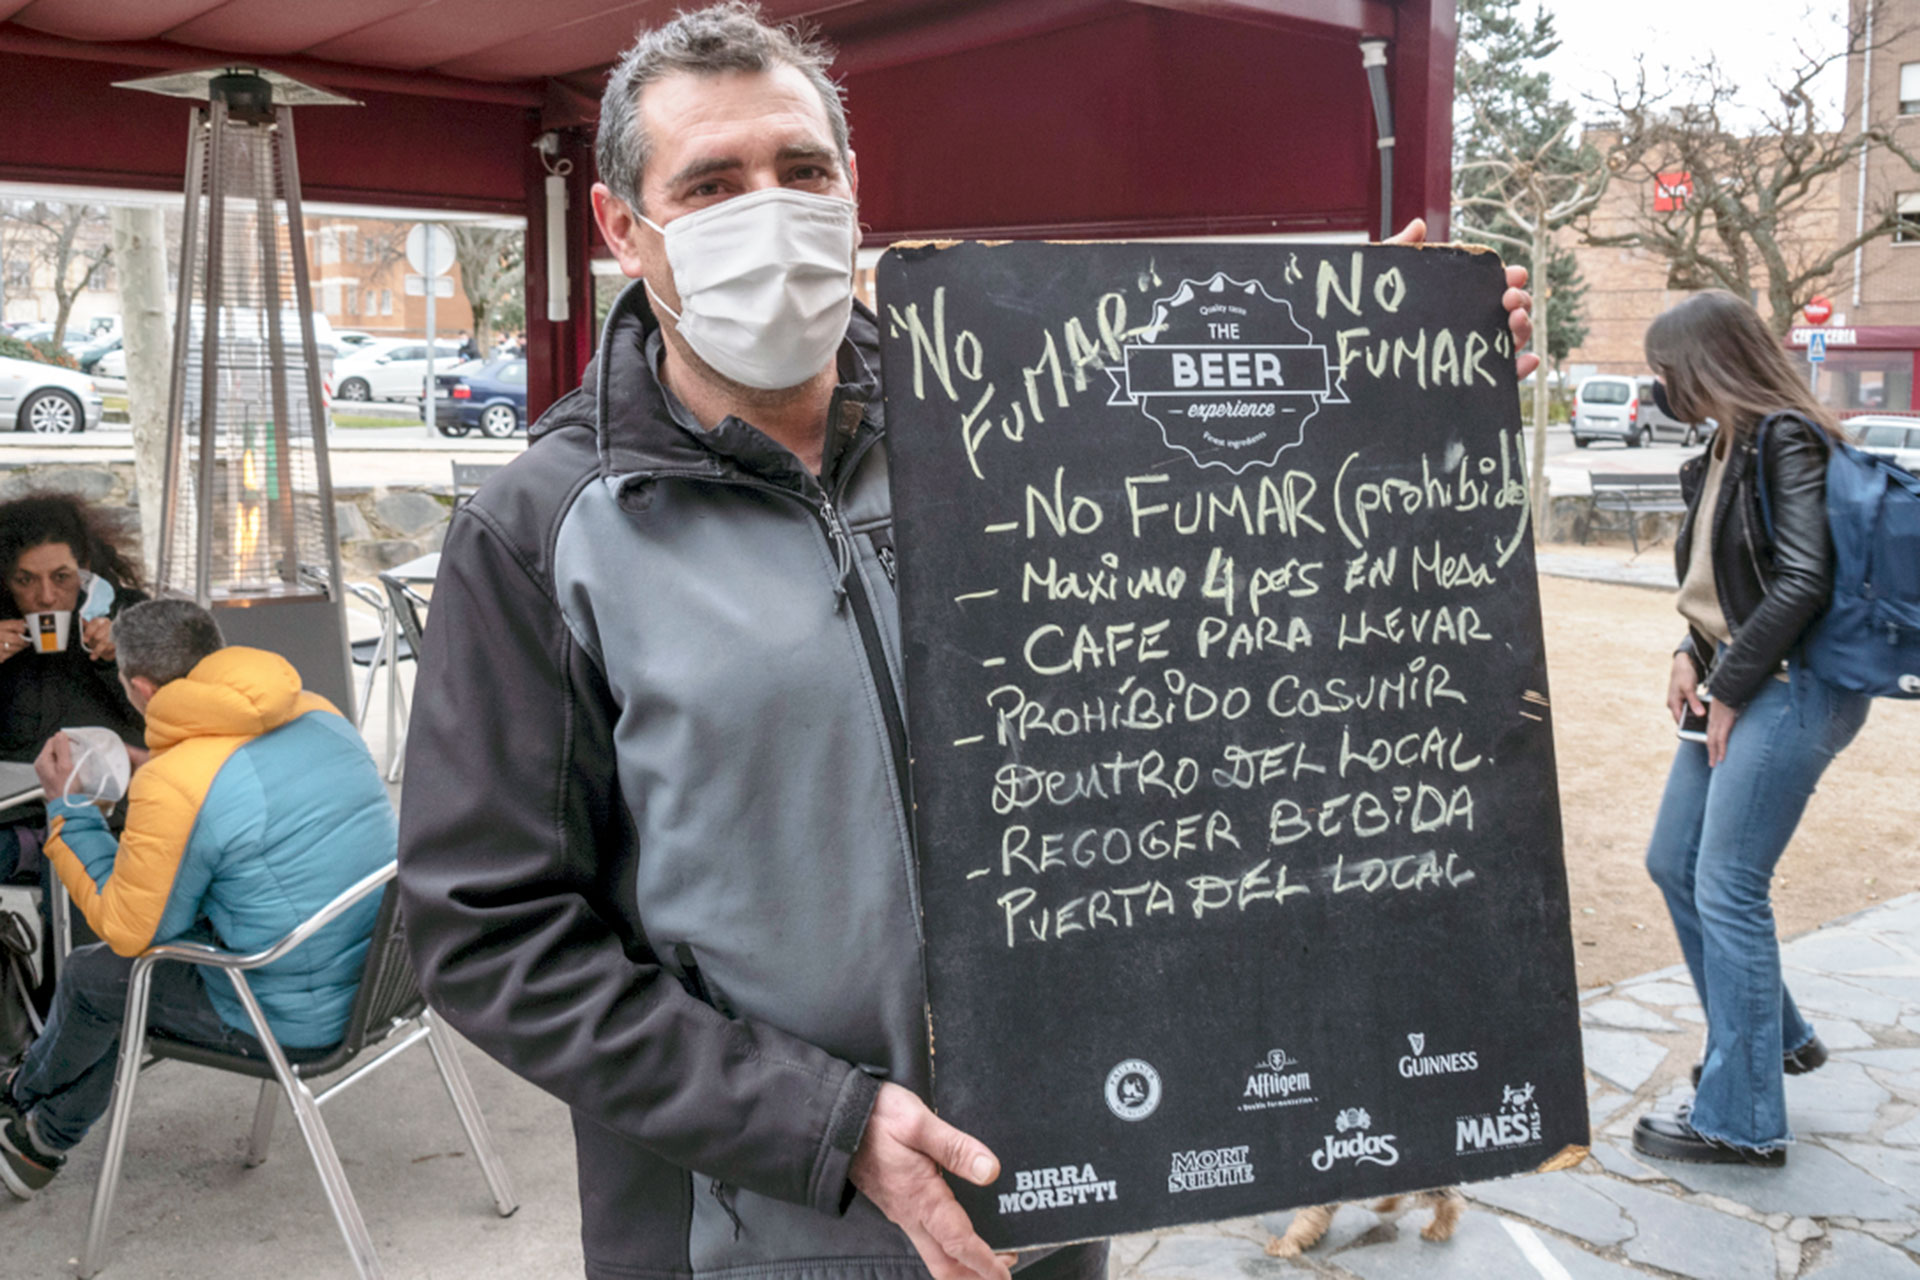 "No
FUMAR"
"No
FUMAR"
Quality taste
THE
BEER
experience
Finest ingredients
- No FUMAR (prohibido)
- Maximo 4 pers EN Mesa
- CAFE PARA LLEVAR
- PROHIBIDO COSUMIR
DENTRO DEL LOCAL.
- RECOGER BEBIDA
PUERTA DEL LOCAL
PAULANER
Affligem
Double Fermentation
GUINNESS
BIRRA
MORETTI
MORT
SUBITE
Judas
MAES
PILS
CERVECERIA